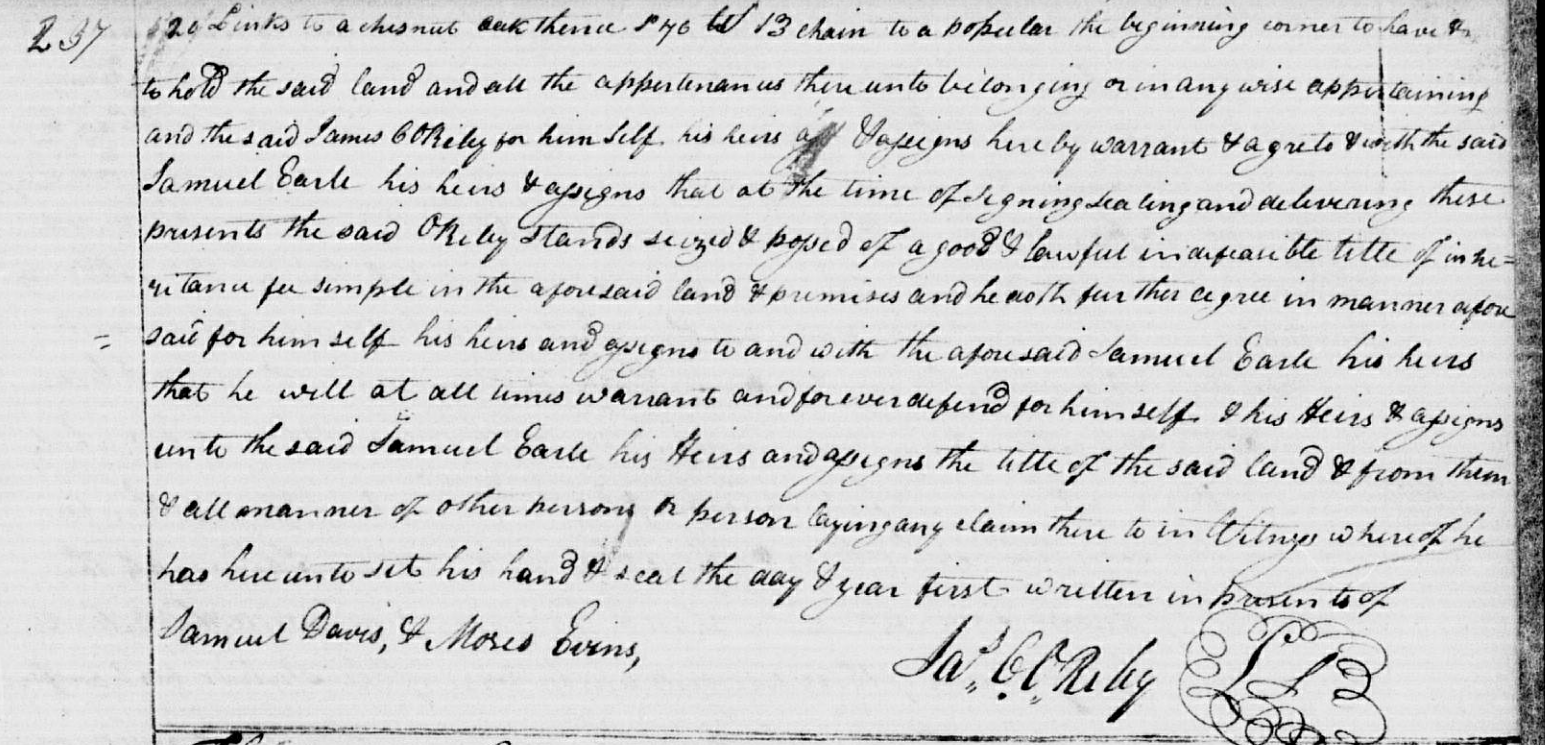 237
20 Links to a chesnut oak thence S 70 W 13 chain to a popular the beginning corner to have &
to hold the said land and all the appertenances there unto belonging or in any wise appertaining
and the said James O Riley for him Self his heirs & assigns here by warrant & agre to & with the said
Samuel Earle his heirs & assigns that at the time of signing sealing and delivering these
presents the said ORiley stands seized & possed of a good & lawful indefeasible title of inhe=
ritance fee simple in the aforesaid land & premises and he doth further agree in manner afore
= said for him self his heirs and assigns to and with the aforesaid Samuel Earle his heirs
that he will at all times warrant and forever defend for him self & his Heirs & assigns
unto the said Samuel Earle his Heirs and assigns the title of the said land & from them
& all manner of other persons or person laying any claim there to in Witness where of he
has here unto set his hand & seal the day & year first written in presents of
Samuel Davis, & Moses Evins,
Jas. Riley LS